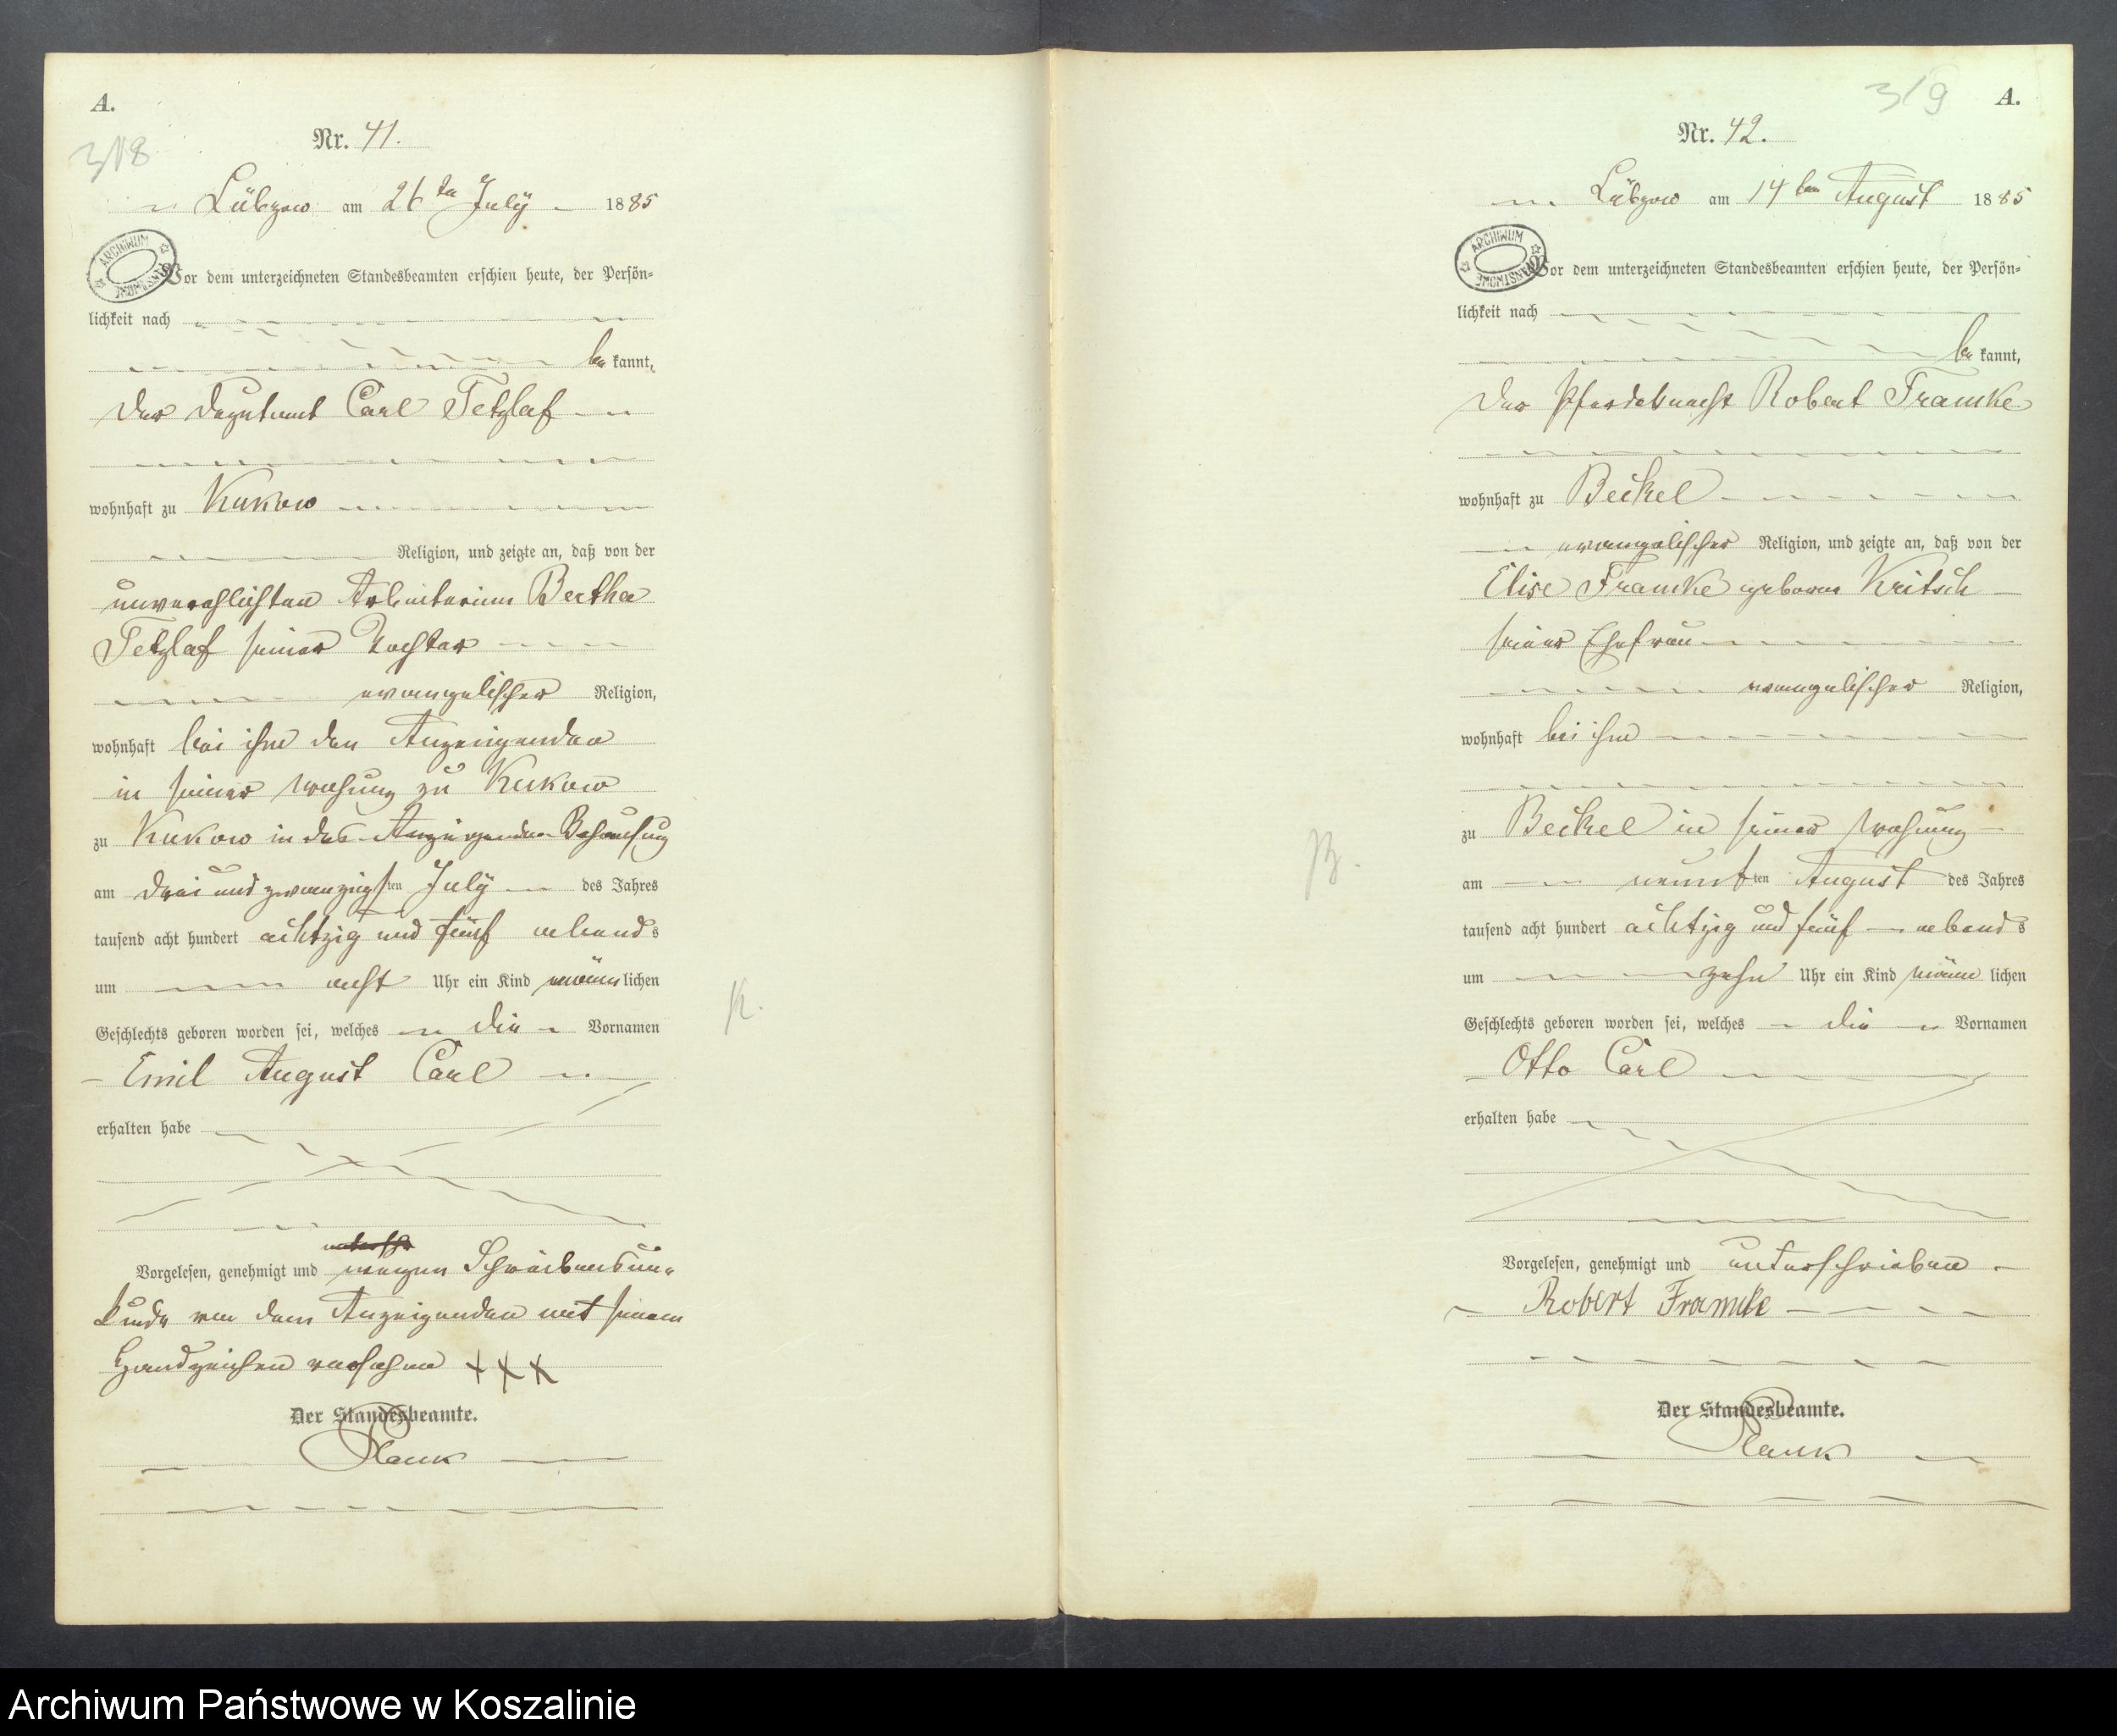 A.
318
Nr. 41.
Lübzow am 26ten July 1885
ARCHIWUM PAŃSTWOWE
Vor dem unterzeichneten Standesbeamten erschien heute, der Persön-
lichkeit nach
be kannt,
der Deputant Carl Tetzlaf
wohnhaft zu Kukow
Religion, und zeigte an, daß von der
unverehlichten Arbeiterinn Bertha
Tetzlaf seiner Tochter
evangelischer Religion,
wohnhaft bei ihm den Anzeigenden
in seiner Wohnung zu Kukow
zu Kukow in des Anzeigenden Behausung
am drei und zwanzigsten July des Jahres
tausend acht hundert achtzig und fünf abends
um acht Uhr ein Kind männlichen
Geschlechts geboren worden sei, welches die Vornamen
Emil August Carl
erhalten habe
Vorgelesen, genehmigt und wegen Schreibensun-
kunde von dem Anzeigenden mit seinem
Handzeichen versehen XXX
Der Standesbeamte.
K.
319
A.
Nr. 42.
Lübzow am 14ten August 1885
ARCHIWUM PAŃSTWOWE
Vor dem unterzeichneten Standesbeamten erschien heute, der Persön-
lichkeit nach
be kannt,
der Pferdeknecht Robert Framke
wohnhaft zu Beckel
evangelischer Religion, und zeigte an, daß von der
Elise Framke geborne Kritsch
seiner Ehefrau
evangelischer Religion,
wohnhaft bei ihm
zu Beckel in seiner Wohnung
am neunten August des Jahres
tausend acht hundert achtzig und fünf abends
um zehn Uhr ein Kind männlichen
Geschlechts geboren worden sei, welches die Vornamen
Otto Carl
erhalten habe
Vorgelesen, genehmigt und unterschrieben
Robert Framke
Der Standesbeamte.
B.
Archiwum Państwowe w Koszalinie